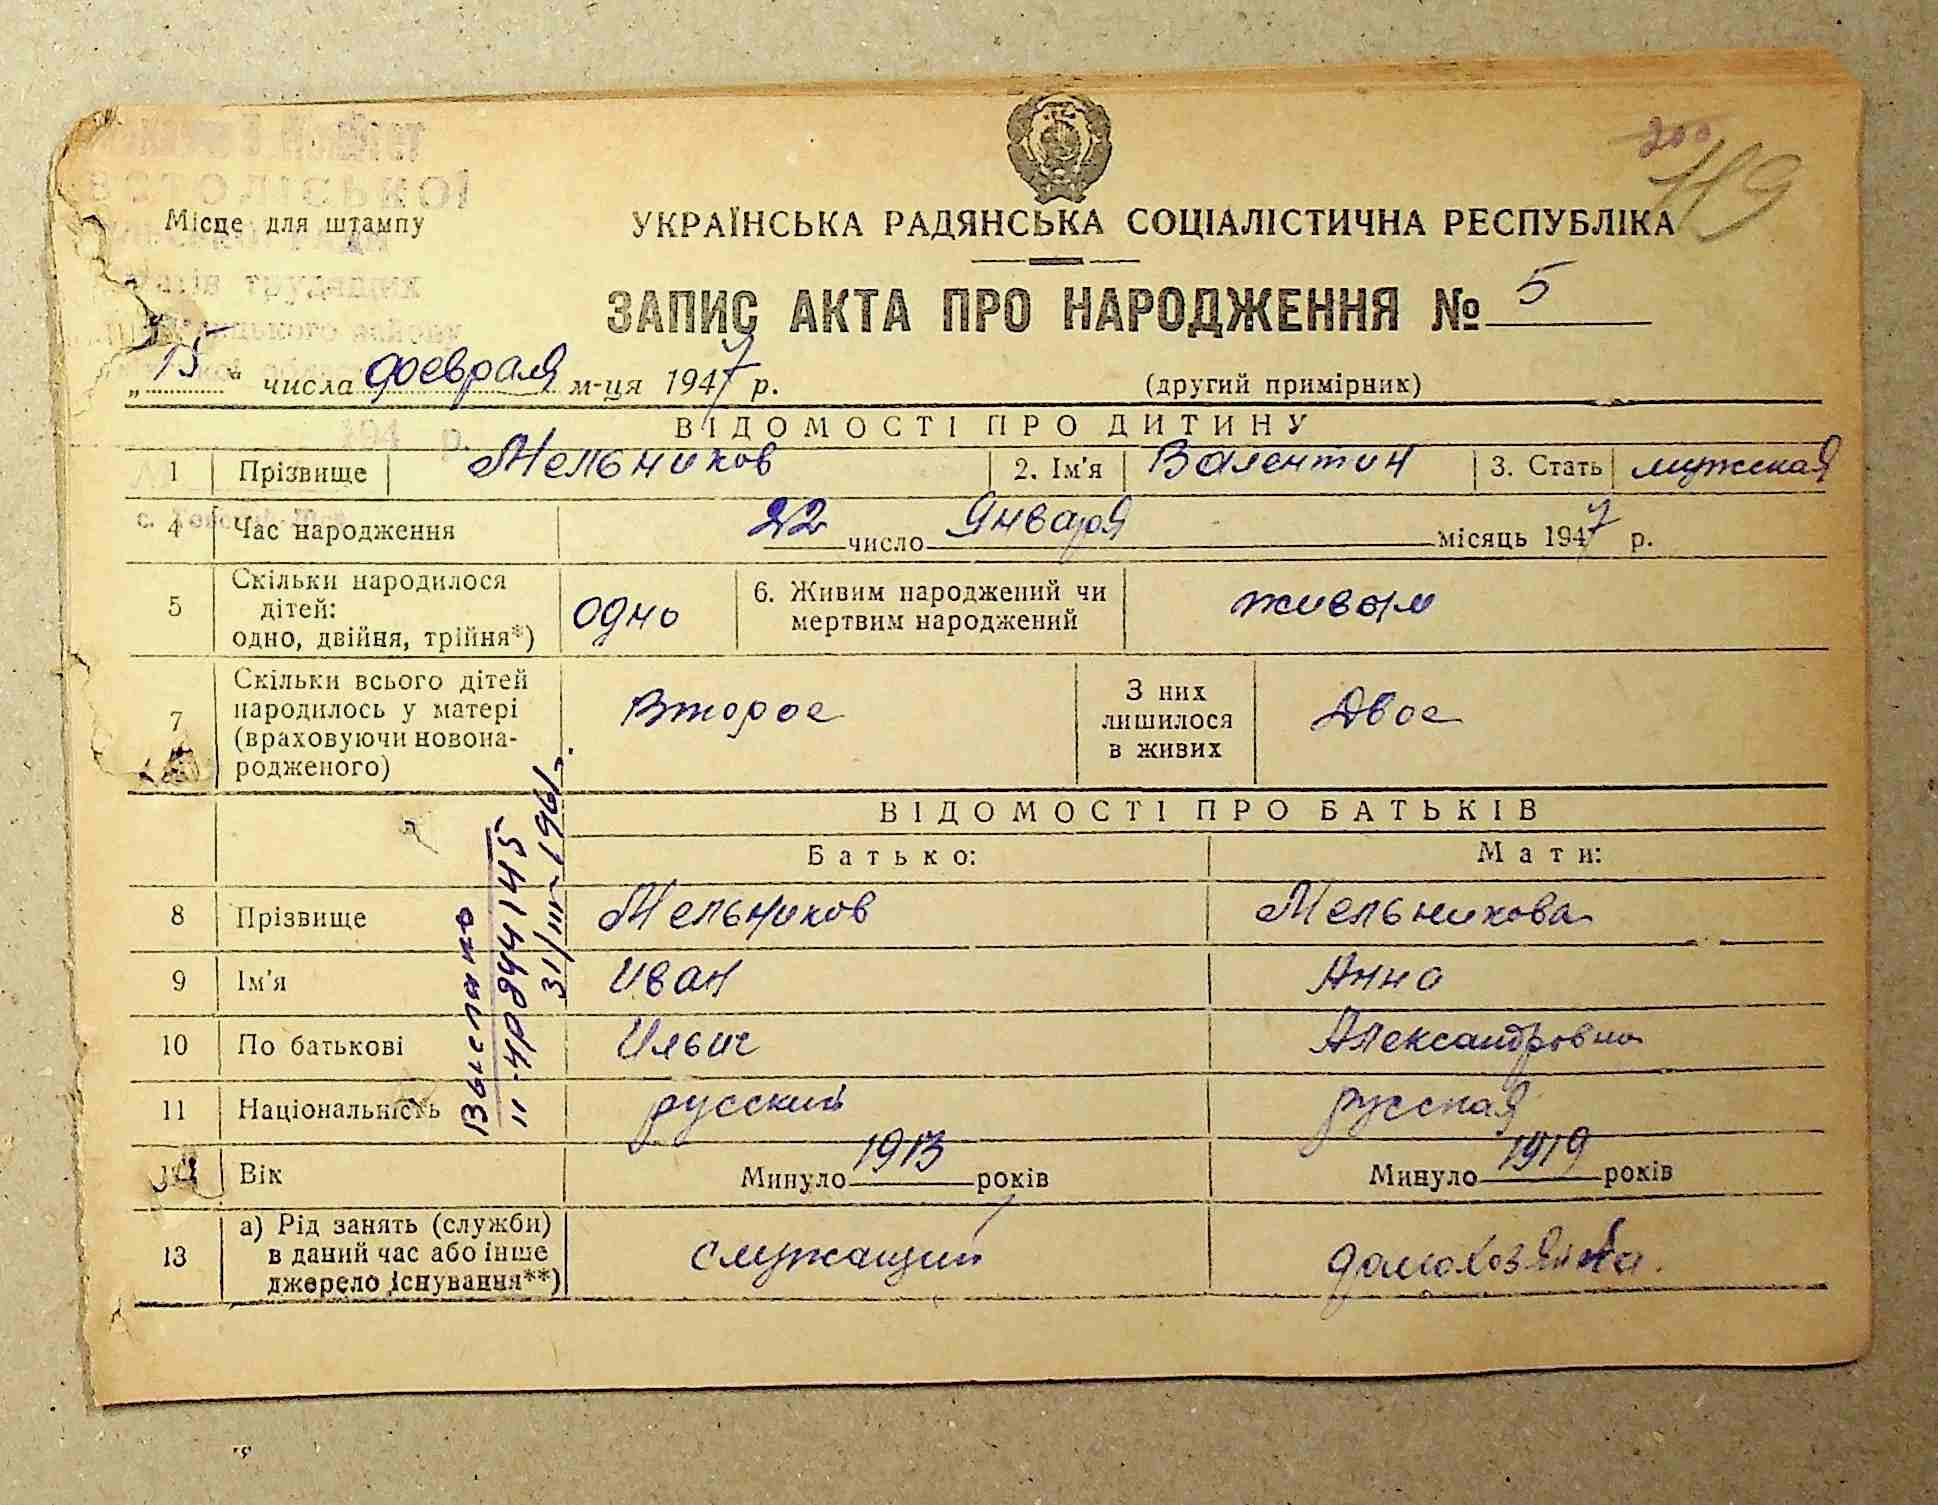 200
119
Місце для штампу
УКРАЇНСЬКА РАДЯНСЬКА СОЦІАЛІСТИЧНА РЕСПУБЛІКА
трудящих
ЗАПИС АКТА ПРО НАРОДЖЕННЯ № 5
„15“ числа февраля м-ця 1947 р. (другий примірник)
194 р.
ВІДОМОСТІ ПРО ДИТИНУ
1 Прізвище Мельников 2. Ім'я Валентин 3. Стать мужская
4 Час народження 22 число Января місяць 1947 р.
5 Скільки народилося
дітей:
одно, двійня, трійня*) одно 6. Живим народжений чи
мертвим народжений живым
7 Скільки всього дітей
народилось у матері
(враховуючи новона-
родженого) Второе З них
лишилося
в живих Двое
ВІДОМОСТІ ПРО БАТЬКІВ
Батько: Мати:
8 Прізвище Мельников Мельникова
9 Ім'я Иван Анна
10 По батькові Ильич Александровна
11 Національність русский русская
12 Вік Минуло 1913 років Минуло 1919 років
13 а) Рід занять (служби)
в даний час або інше
джерело існування**) служащий домохозяйка.
Выслано
31/III-1961г.